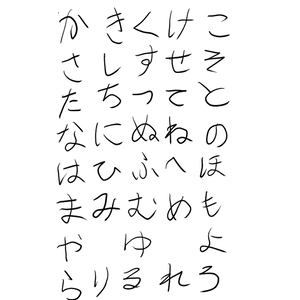 かきくけこ
さしすせそ
たちつてと
なにぬねの
はひふへほ
まみむめも
やゆよ
らりるれろ